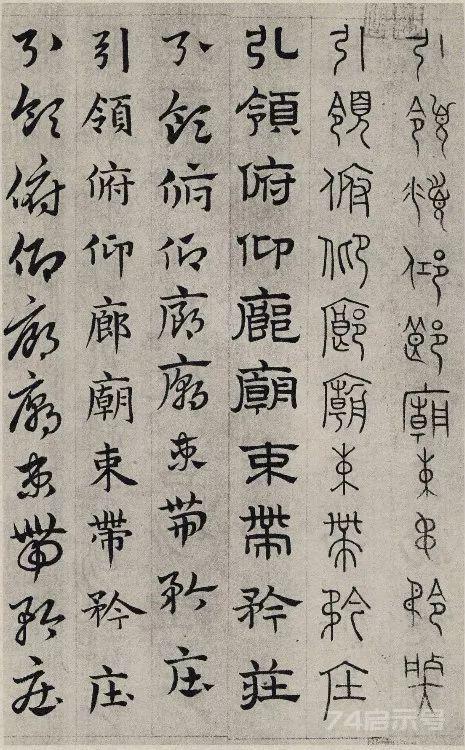 引領俯仰廊廟束帶矜莊
引領俯仰廊廟束帶矜庄
引領俯仰廊廟束帶矜莊
引領俯仰廊廟束帶矜庄
引領俯仰廊廟束帶矜庄
引領俯仰廊廟束帶矜庄
74启示号